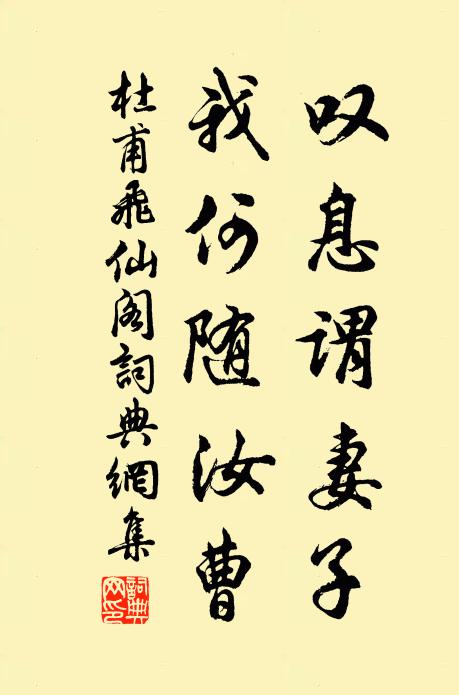 叹息谓妻子
我何随汝曹
杜甫飛仙阁詞典網集
詞典網印